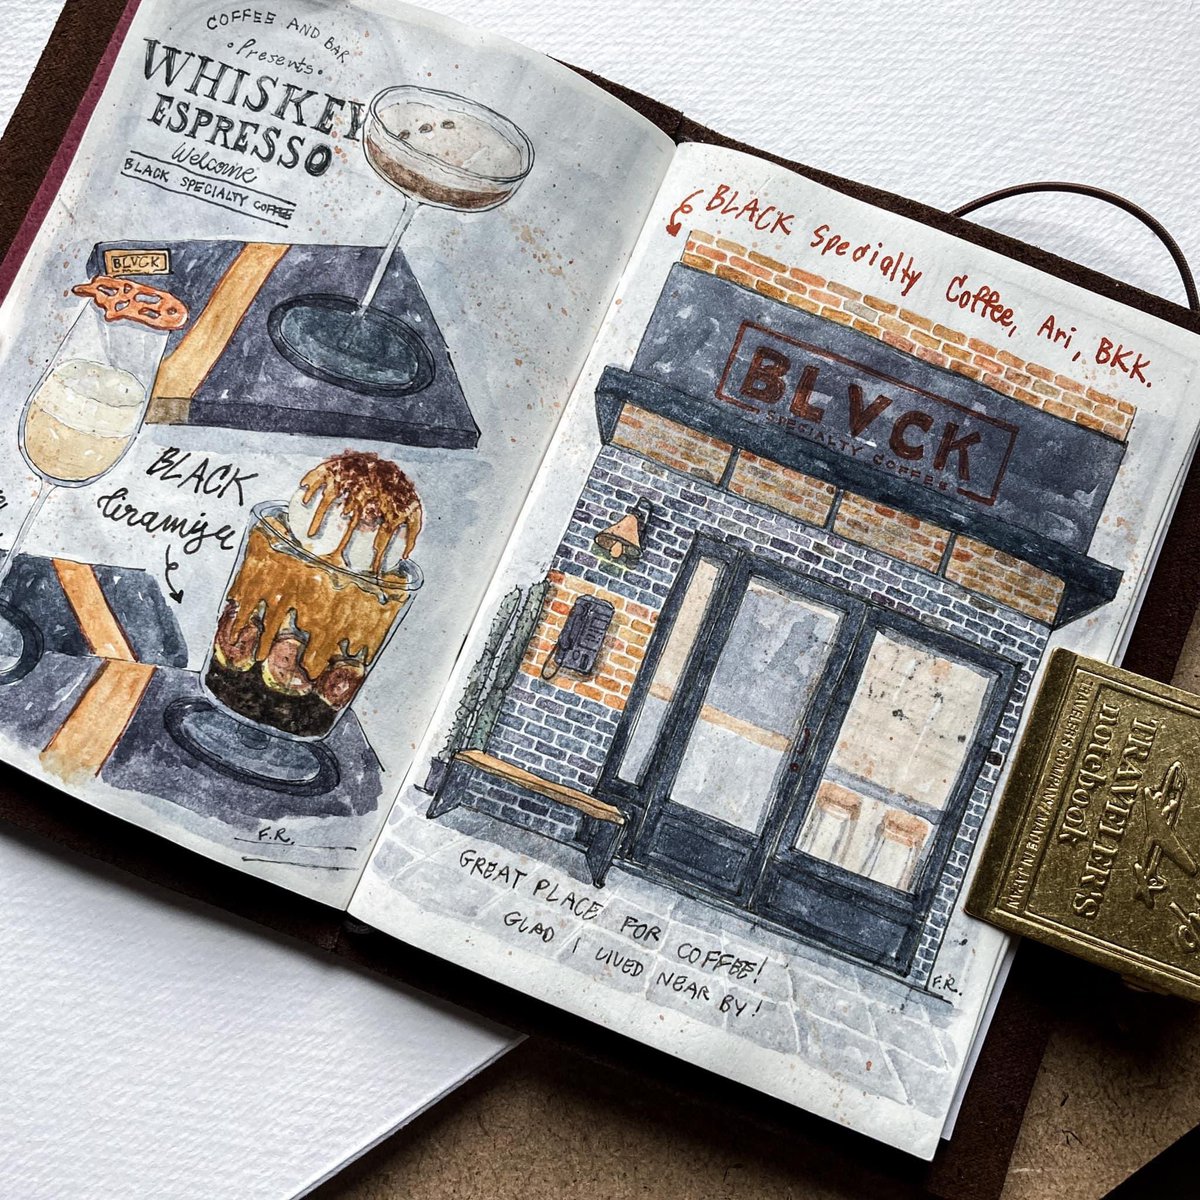 COFFEE AND BAR
• Presents •
WHISKEY
ESPRESSO
Welcome
BLACK SPECIALTY COFFEE
BLVCK
BLACK
tiramisu
F.R.
BLACK Specialty Coffee, Ari, BKK.
BLVCK
SPECIALTY COFFEE
GREAT PLACE FOR COFFEE!
GLAD I LIVED NEAR BY!
F.R.
TRAVELER'S
notebook
TRAVELER'S COMPANY MADE IN JAPAN